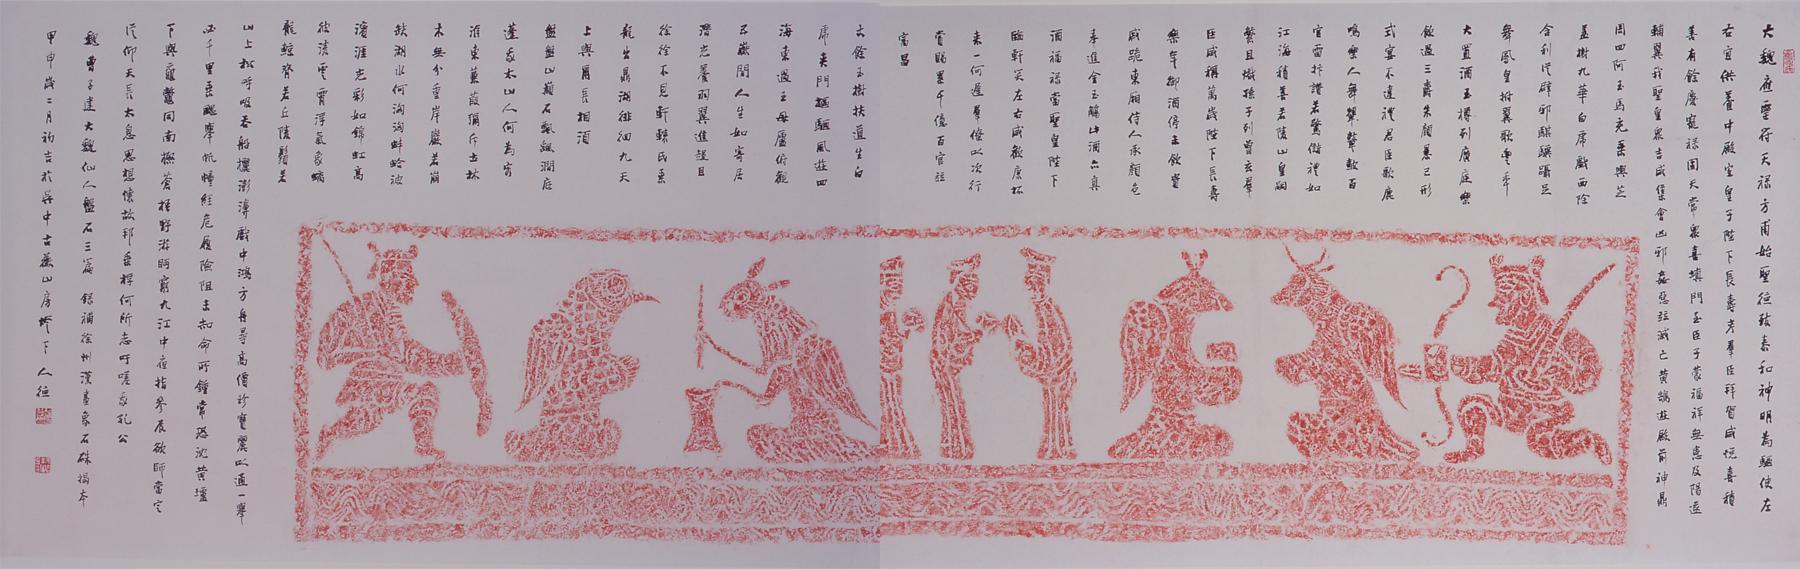 大魏應靈符天祿方甫始聖德致泰和神明為驅使左
右宜供養中殿宜皇子陛下長壽考羣臣拜賀咸悅喜積
善有餘慶寵祿固天常眾喜填門至臣子蒙福祥無患及陽遂
輔翼我聖皇眾吉咸集會凶邪姦惡並滅亡黃鵠遊殿前神鼎
周四阿玉馬充乘輿芝
蓋樹九華白虎戲西除
舍利從辟邪騏驥躡足
舞鳳皇拊翼歌豐年
大置酒玉樽列廣庭樂
飲過三爵朱顏暴己形
式宴不違禮君臣歌鹿
鳴樂人舞鼙鼓百
官雷抃讚若驚儲禮如
江海積善若陵山皇嗣
繁且熾孫子列曾玄羣
臣咸稱萬歲陛下長壽
樂年御酒停未飲貴
戚跪東廂侍人承顏色
奉進金玉觴此酒亦真
酒福祿當聖皇陛下
臨軒笑左右咸歡康杯
來一何遲羣僚以次行
賞賜累千億百官並
富昌
丈餘玉樹扶道生白
虎夾門樞驅風遊四
海東過王母廬俯觀
五嶽間人生如寄居
潛光養羽翼進趨且
徐徐不見軒轅氏乘
龍出鼎湖徘徊九天
上與爾長相須
盤盤山巔石飄颻澗底
蓬我本太山人何為客
淮東蒹葭彌斥土林
木無分重岸巖若崩
缺湖水何洶洶蚌蛤被
濱涯光彩如錦虹高
彼凌雲霄浮氣象螭
龍鯨脊若丘陵鬚若
山上松呼吸吞船欐澎濞戲中鴻方舟尋高價珍寶麗以通一舉
必千里乘颸舉帆幢經危履險阻未知命所鍾常恐沈黃壚
下與黿鼈同南極蒼梧野游眄窮九江中夜指參辰欲師當定
從仰天長太息思想懷故邦乘桴何所志吁嗟我孔公
魏曹子建大魏仙人盤石三篇 錄補徐州漢畫象石硃搨本
甲申歲二月初吉於吳中古 山房燈下 人德